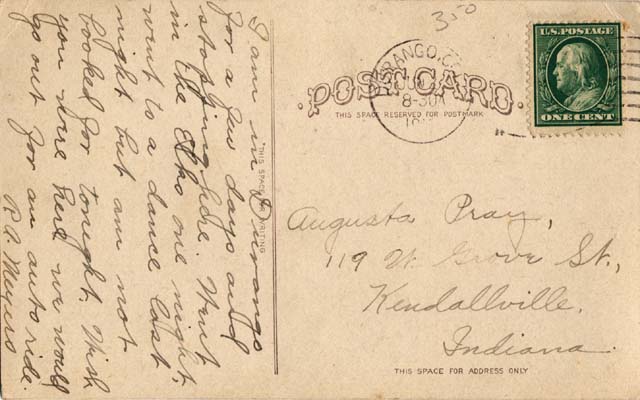 I am in Durango
for a few days and
stopping here. Went
in the Elks one night,
went to a dance last
night but am not
booked for tonight. Wish
you were here we would
go out for an auto ride.
R.A. Meyers
350
U.S. POSTAGE
ONE CENT
RANGO, C
8-30A
POST CARD.
THIS SPACE RESERVED FOR POSTMARK
THIS SPACE FOR WRITING
Augusta Pray,
119 W. Grove St.,
Kendallville,
Indiana.
THIS SPACE FOR ADDRESS ONLY